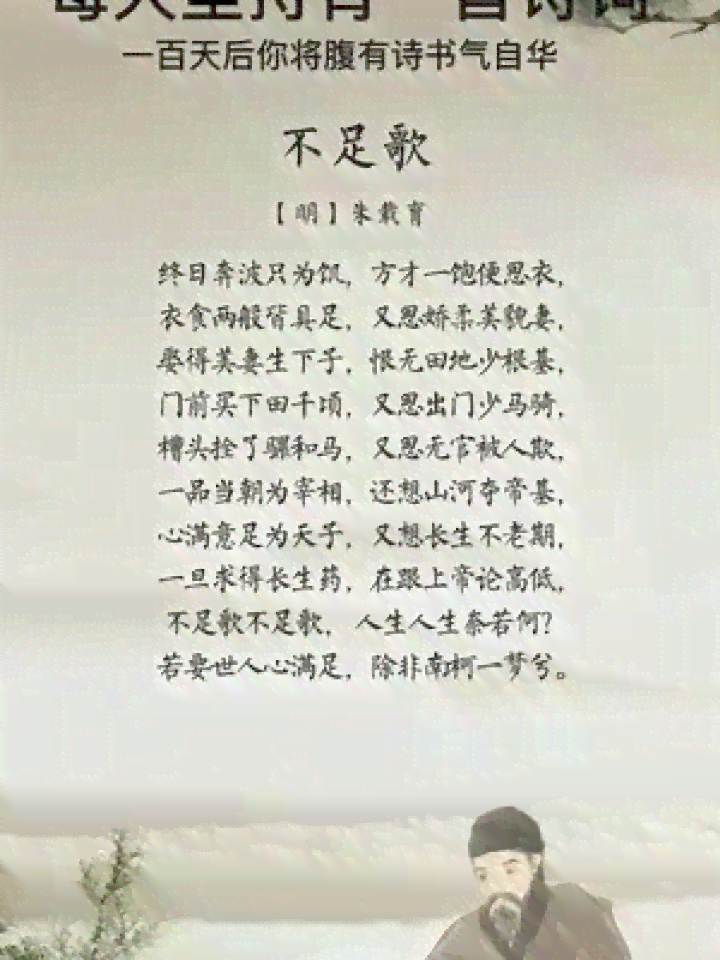 一百天后你将腹有诗书气自华
不足歌
【明】朱载育
终日奔波只为饥，方才一饱便思衣，
衣食两般皆具足，又思娇柔美貌妻，
娶得美妻生下子，恨无田地少根基，
门前买下田千顷，又思出门少马骑，
槽头拴了骡和马，又思无官被人欺，
一品当朝为宰相，还想山河夺帝基，
心满意足为天子，又想长生不老期，
一旦求得长生药，在跟上帝论高低，
不足歌不足歌，人生人生奈若何？
若要世人心满足，除非南柯一梦兮。